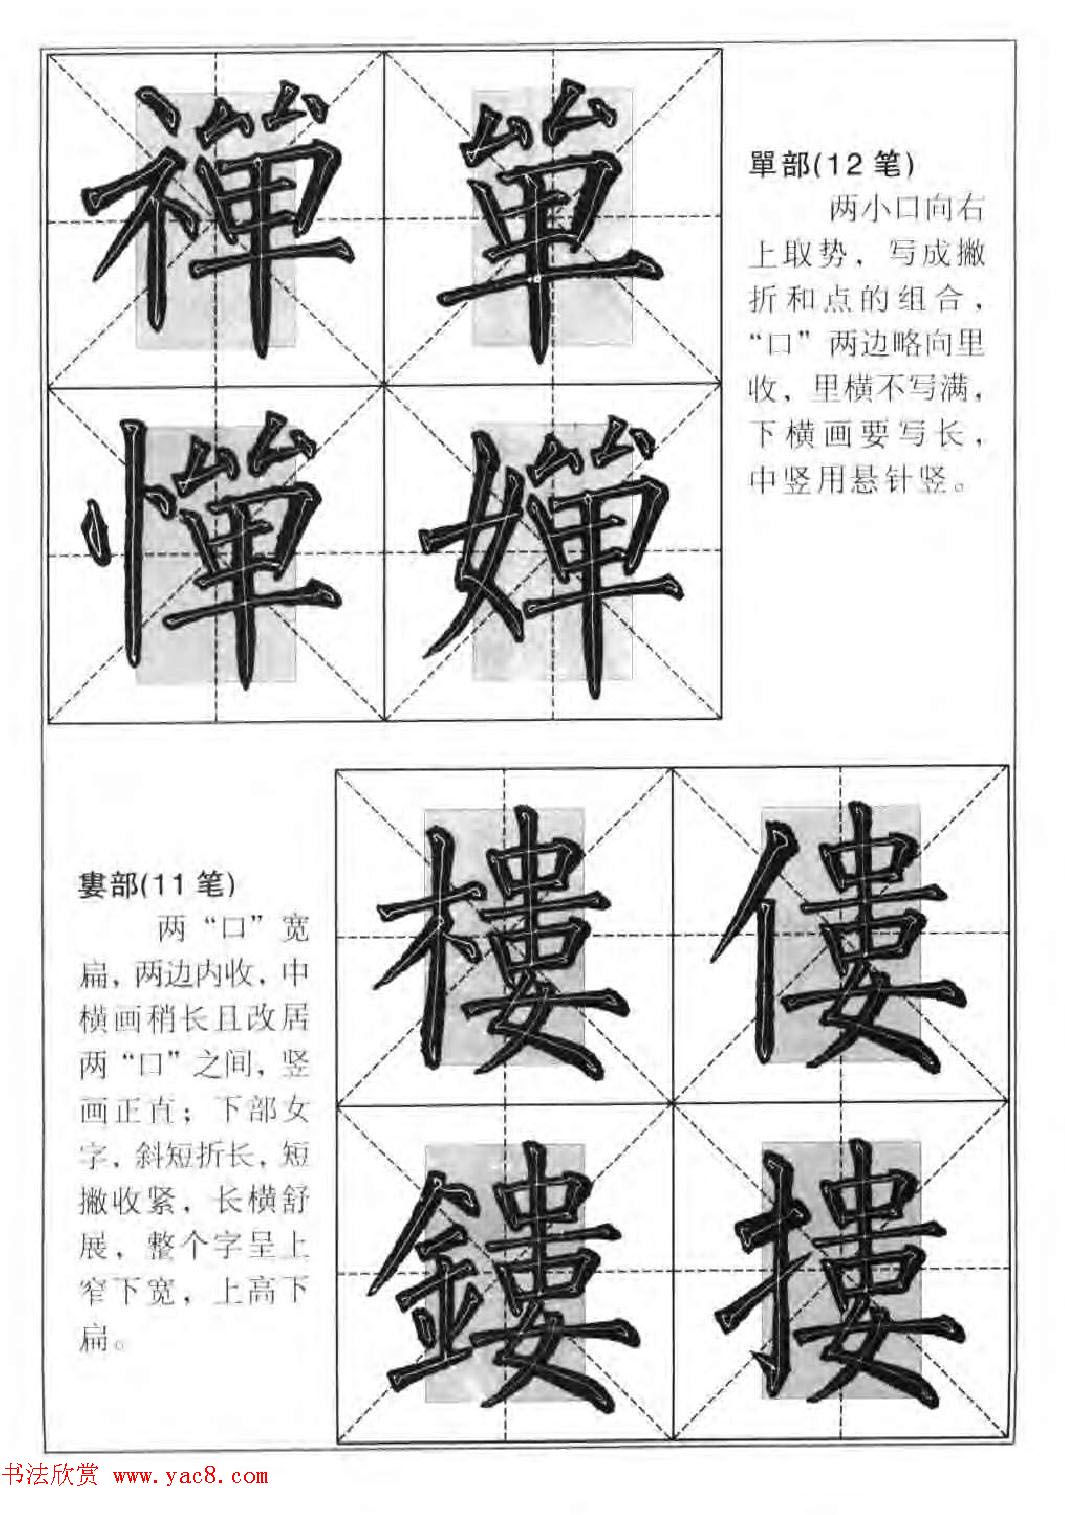 禪 單
單部(12笔)
两小口向右
上取势，写成撇
折和点的组合，
“口”两边略向里
收，里横不写满，
下横画要写长，
中竖用悬针竖。
憚 嬋
樓 僂
婁部(11笔)
两“口”宽
扁，两边内收，中
横画稍长且改居
两“口”之间，竖
画正直；下部女
字，斜短折长，短
撇收紧，长横舒
展，整个字呈上
窄下宽，上高下
扁。
鏤 摟
书法欣赏 www.yac8.com